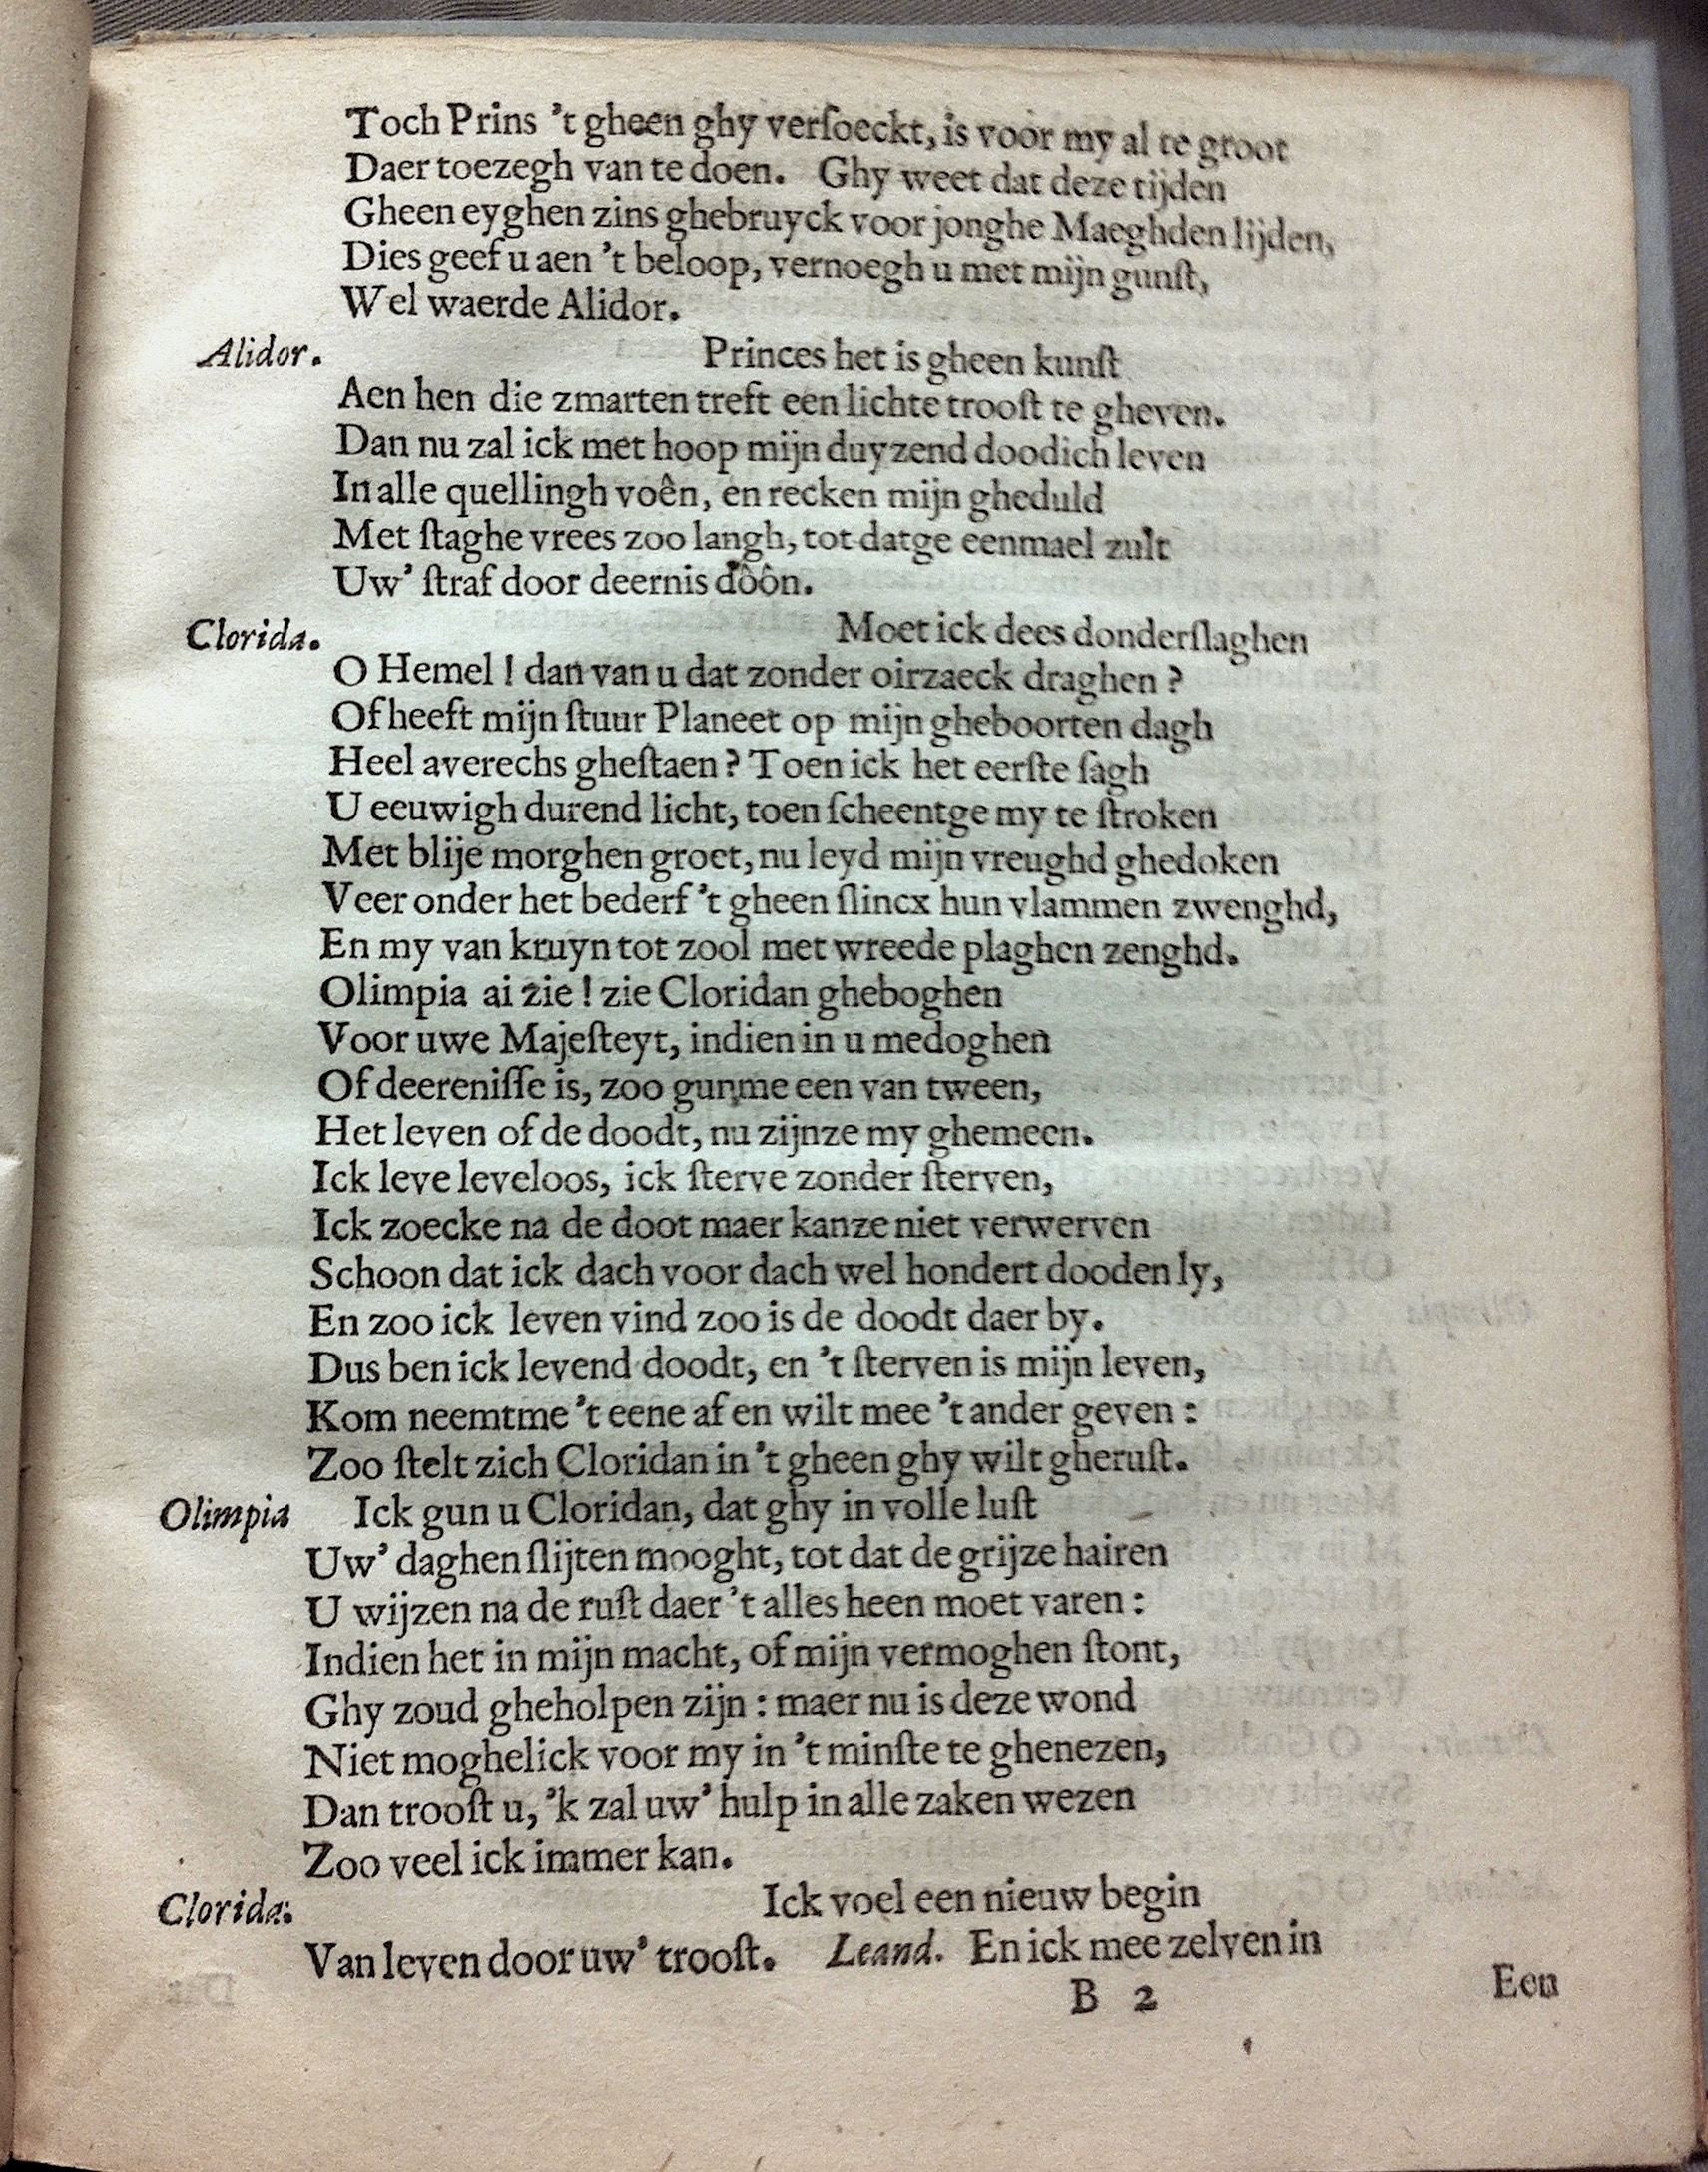 Toch Prins 't gheen ghy verſoeckt, is voor my al te groot
Daer toezegh van te doen. Ghy weet dat deze tijden
Gheen eyghen zins ghebruyck voor jonghe Maeghden lijden,
Dies geef u aen 't beloop, vernoegh u met mijn gunſt,
Wel waerde Alidor.
Alidor. Princes het is gheen kunſt
Aen hen die zmarten treft een lichte trooſt te gheven.
Dan nu zal ick met hoop mijn duyzend doodich leven
In alle quellingh voên, en recken mijn gheduld
Met ſtaghe vrees zoo langh, tot datge eenmael zult
Uw' ſtraf door deernis dôôn.
Clorida. Moet ick dees donderſlaghen
O Hemel! dan van u dat zonder oirzaeck draghen?
Of heeft mijn ſtuur Planeet op mijn gheboorten dagh
Heel averechs gheſtaen? Toen ick het eerſte ſagh
U eeuwigh durend licht, toen ſcheentge my te ſtroken
Met blije morghen groet, nu leyd mijn vreughd ghedoken
Veer onder het bederf 't gheen ſlincx hun vlammen zwenghd,
En my van kruyn tot zool met wreede plaghen zenghd.
Olimpia ai zie! zie Cloridan gheboghen
Voor uwe Majeſteyt, indien in u medoghen
Of deereniſſe is, zoo gunme een van tween,
Het leven of de doodt, nu zijnze my ghemeen.
Ick leve leveloos, ick ſterve zonder ſterven,
Ick zoecke na de doot maer kanze niet verwerven
Schoon dat ick dach voor dach wel hondert dooden ly,
En zoo ick leven vind zoo is de doodt daer by.
Dus ben ick levend doodt, en 't ſterven is mijn leven,
Kom neemtme 't eene af en wilt mee 't ander geven:
Zoo ſtelt zich Cloridan in 't gheen ghy wilt gheruſt.
Olimpia Ick gun u Cloridan, dat ghy in volle luſt
Uw' daghen ſlijten mooght, tot dat de grijze hairen
U wijzen na de ruſt daer 't alles heen moet varen:
Indien het in mijn macht, of mijn vermoghen ſtont,
Ghy zoud gheholpen zijn: maer nu is deze wond
Niet moghelick voor my in 't minſte te ghenezen,
Dan trooſt u, 'k zal uw' hulp in alle zaken wezen
Zoo veel ick immer kan.
Clorida. Ick voel een nieuw begin
Van leven door uw' trooſt. Leand. En ick mee zelven in
B 2
Een